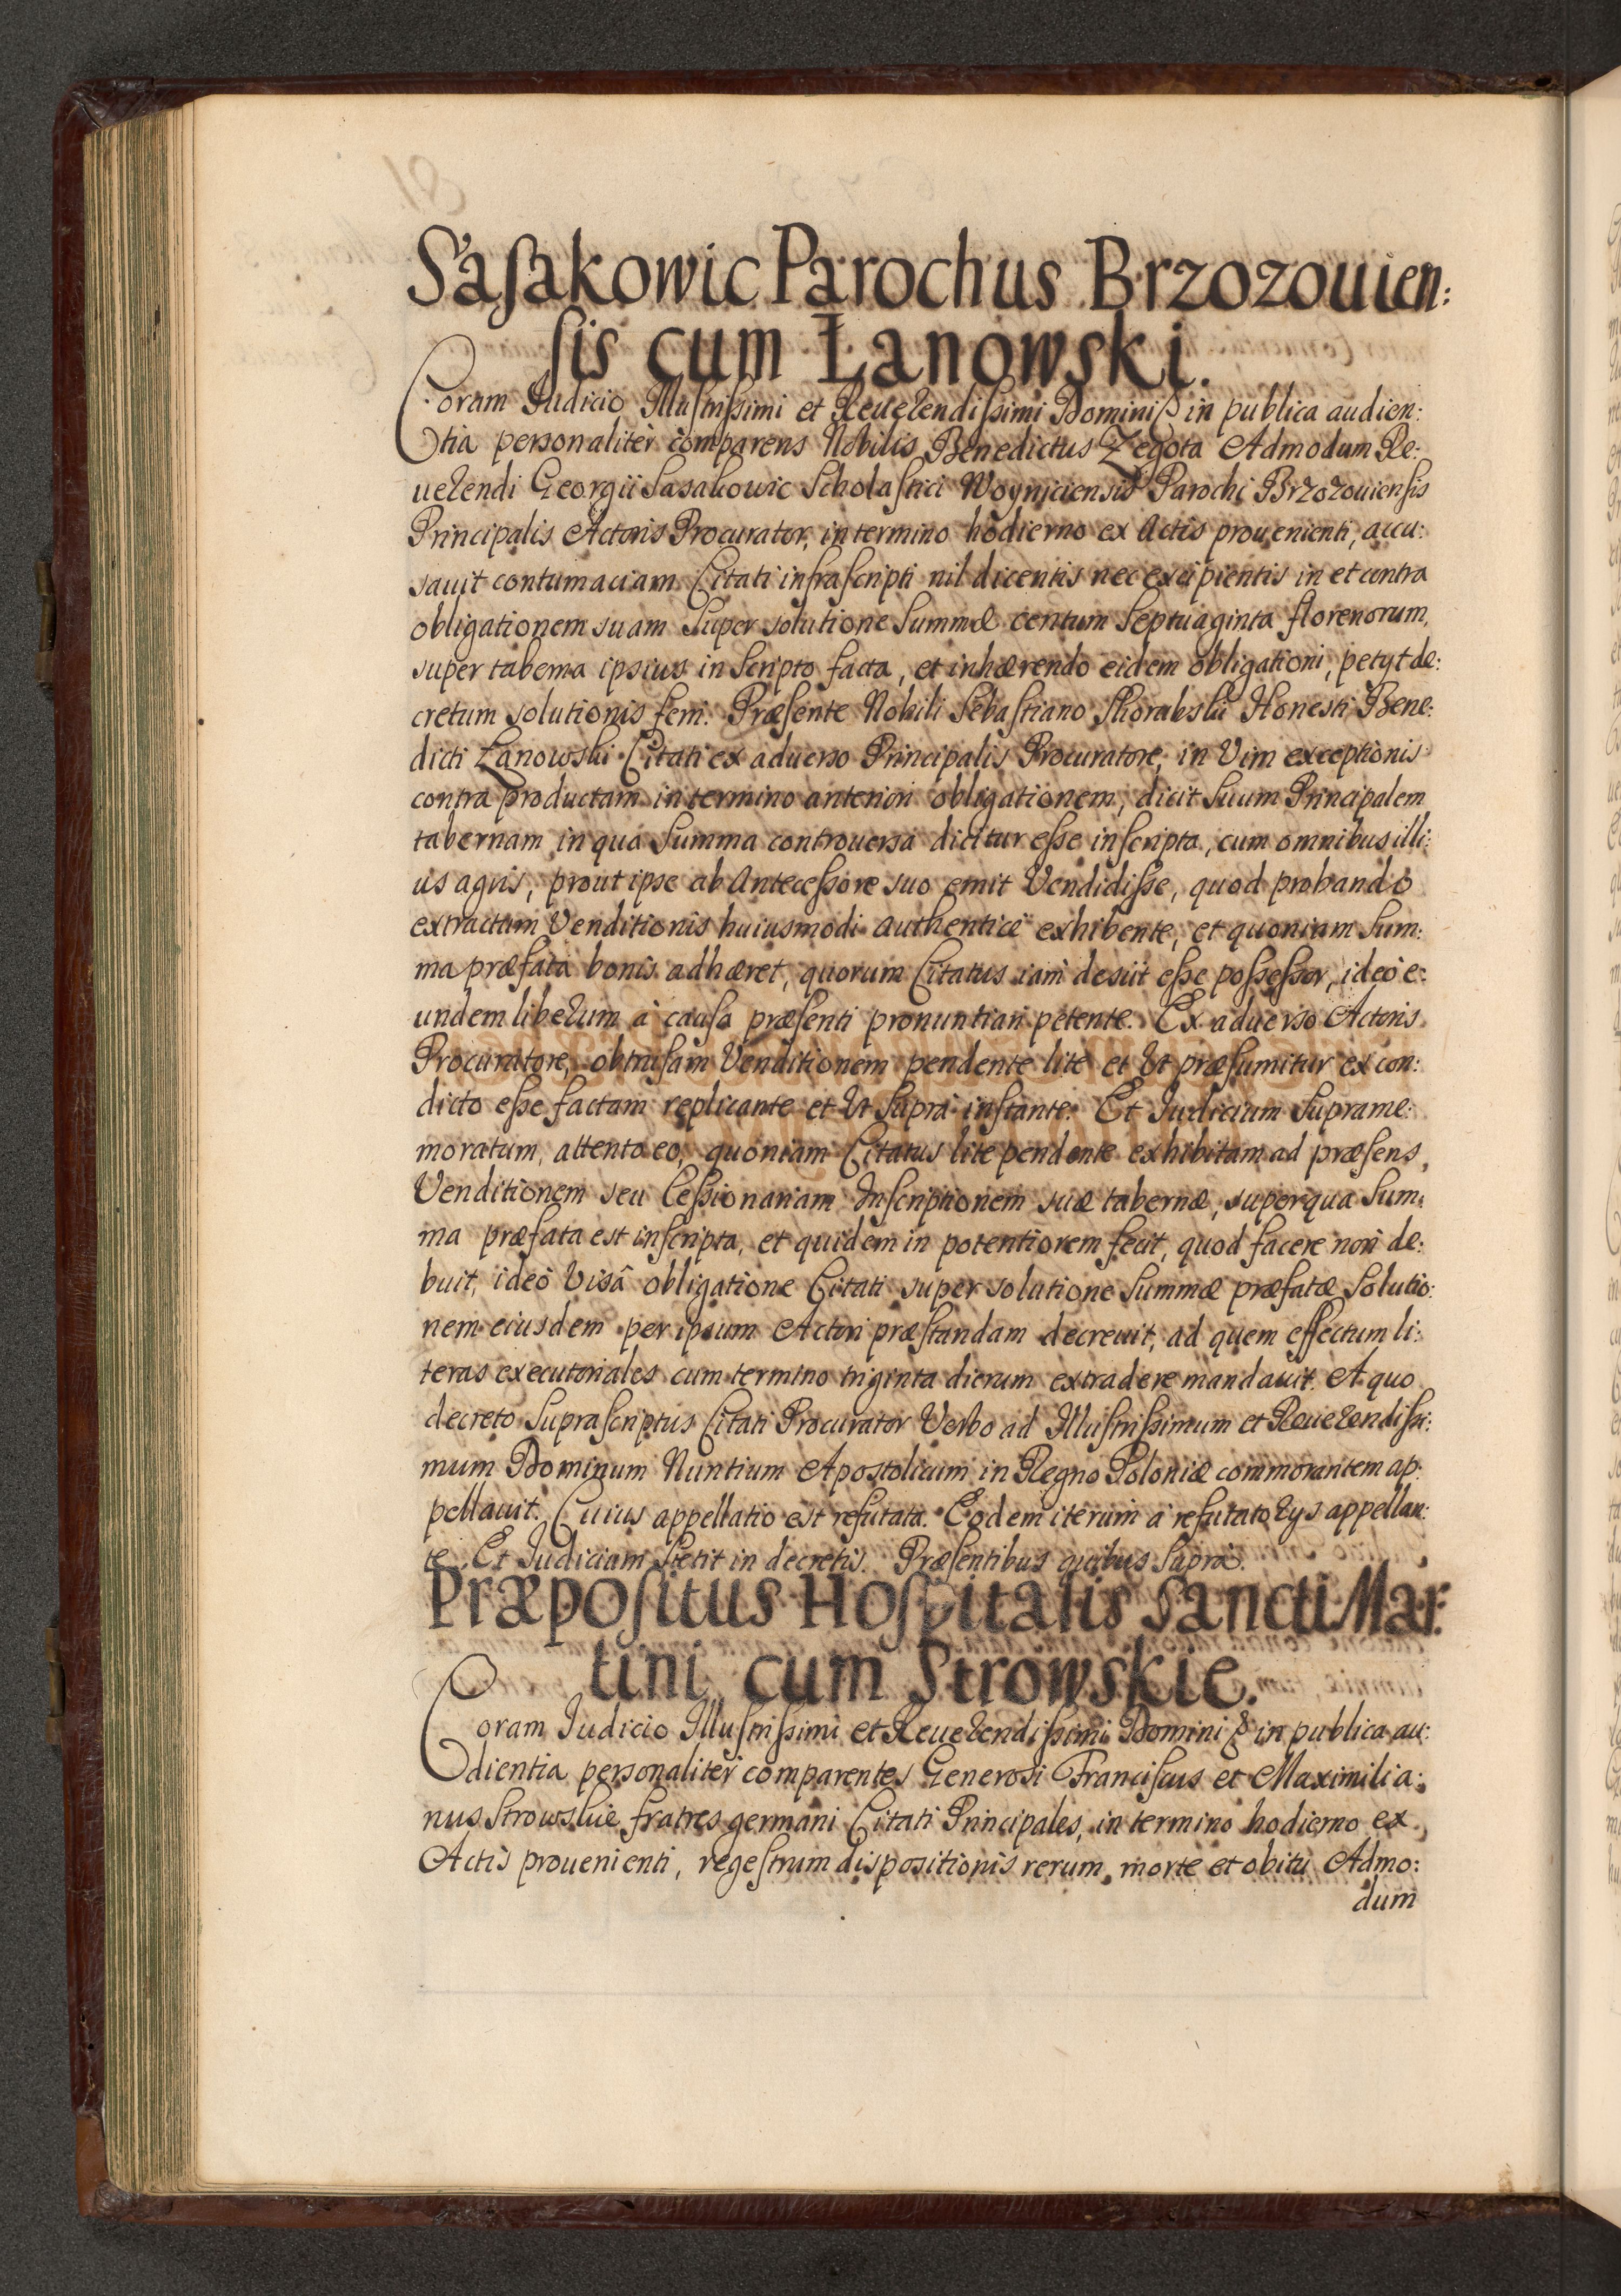 Saſakowic Parochus Brzozouien:
ſis cum Łanowski.
Coram Iudicio Illuſtriſsimi et Reuerendiſsimi Domini & in publica audien:
tia personalitèr comparens Nobilis Benedictus Zegota Admodum Re:
uerendi Georgii Sasakowic Scholaſtici Woyniciensis Parochi Brzozouienſis
Principalis Actoris Procurator, in termino hodierno ex Actis prouenienti, accu:
sauit contumaciam Citati infraſcripti nil dicentis nec excipientis in et contra
obligationem suam Super solutione Summæ centum Septuaginta florenorum,
super taberna ipsius in Scripto facta, et inhærendo eidem obligationi, petyt de:
cretum solutionis ferri. Præſente Nobili Sebaſtiano Skorabski Honesti Bene:
dicti Łanowski Citati ex aduerso Principalis Procuratore, in Vim exceptionis
contra productam in termino anteriori obligationem, dicit Suum Principalem
tabernam in qua Summa controuersa dicitur eſse inſcripta, cum omnibus illi:
us agris, prout ipse ab Anteceſsore suo emit Vendidiſse, quod probando
extractum Venditionis huiusmodi authenticè exhibente, et quoniam Sum:
ma præfata bonis adhæret, quorum Citatus iam desiit eſse poſseſsor, ideò e:
undem liberum à cauſa præſenti pronuntiari petente. Ex aduerso Actoris
Procuratore, obtruſam Venditionem pendente lite et Vt præſumitur ex con:
dicto eſse factam replicante et Vt Suprà inſtante. Et Iudicium Suprame:
moratum, attento eo, quoniam Citatus lite pendente exhibitam ad præſens,
Venditionem seu Ceſsionariam Inſcriptionem suæ tabernæ, super qua Sum:
ma præfata est inſcripta, et quidem in potentiorem fecit, quod facere non de:
buit, ideò Visâ obligatione Citati super solutione Summæ præfatæ Solutio:
nem eiusdem per ipsum Actori præſtandam decreuit, ad quem effectum li:
teras executoriales cum termino triginta dierum extradere mandauit. A quo
decreto Supraſcriptus Citati Procurator Verbo ad Illuſtriſsimum et Reuerendiſsi:
mum Dominum Nuntium Apostolicum in Regno Poloniæ commorantem ap:
pellauit. Cuius appellatio est refutata. Eodem iterum à refutatorys appellan:
te. Et Iudicium Stetit in decretis. Præſentibus quibus Suprà.
Præpoſitus Hoſpitalis Sancti Mar:
tini cum Strowskie.
Coram Iudicio Illuſtriſsimi et Reuerendiſsimi Domini & in publica au:
dientia personalitèr comparentes Generosi Franciſcus et Maximilia:
nus Strowskie fratres germani Citati Principales, in termino hodierno ex
Actis prouenienti, regeſtrum dispositionis rerum, morte et obitu Admo:
dum